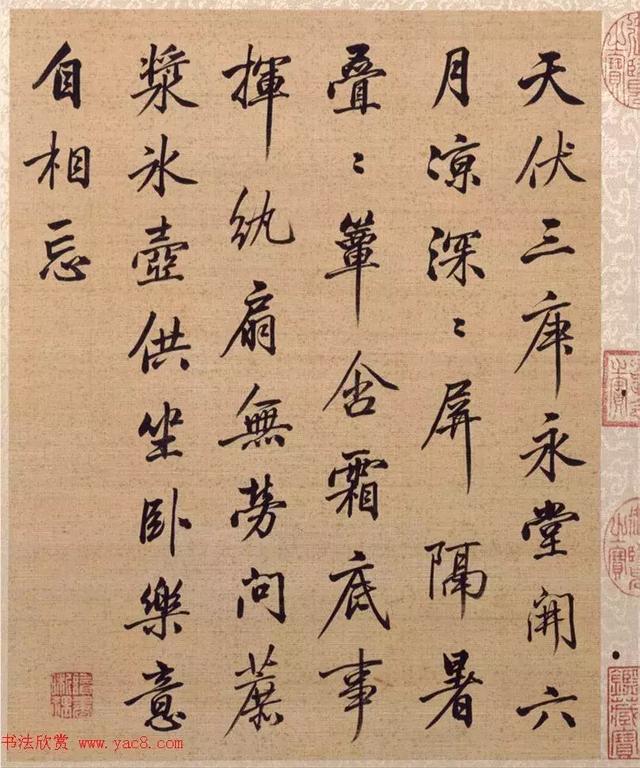 天伏三庚永堂開六
月涼深〻屏隔暑
疊〻簟含霜底事
揮紈扇無勞問蔗
漿氷壺供坐臥樂意
自相忘
书法欣赏 www.yac8.com